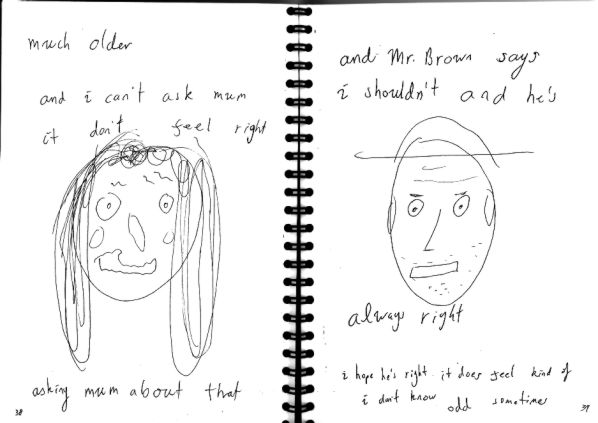 much older
and i can't ask mum
it don't feel right
asking mum about that
38
and Mr. Brown says
i shouldn't and he's
always right
i hope he's right it does feel kind of
i don't know odd sometimes
39